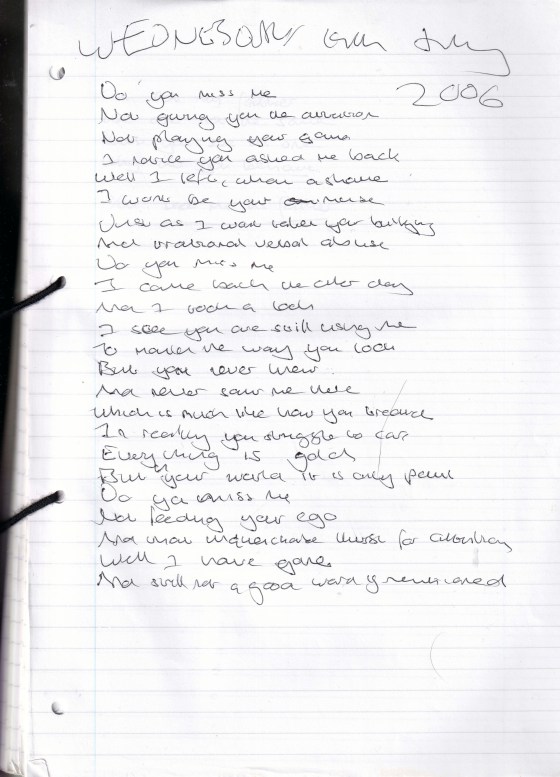 WEDNESDAY July
2006
Do you miss me
Not giving you the attention
Not playing your game
I notice you asked me back
Well I left, what a shame
I wont be your nurse
Just as I wont take your bullying
And irrational verbal abuse
Do you miss me
I came back the other day
And I took a look
I see you are still using me
To the way you look
But you never knew
And never saw me there
Which is much like how you
In reality you struggle to care
Everything is gold
But your world it is only
Do you miss me
Not feeding your ego
And that unquenchable thirst for
Well I have gone
And still not a good word is mentioned